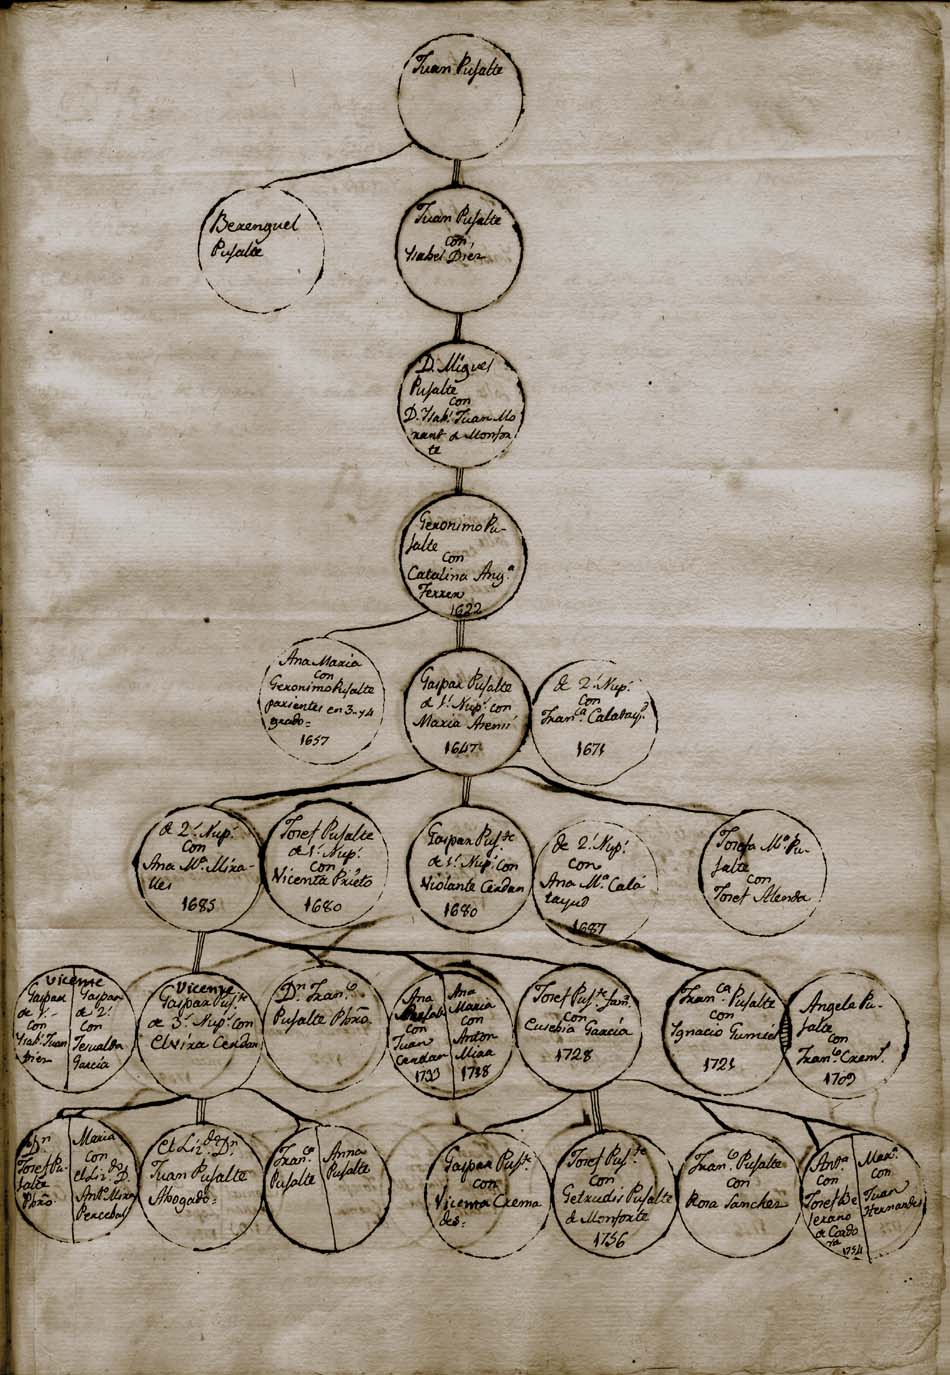 Juan Pusalte
Berenguel
Pusalte
Juan Pusalte
con
Ysabel Diez
D. Miguel
Pusalte
con
D.ª Ysab.l Juan Mo
rant de Monfor
te
Geronimo Pu-
salte
con
Catalina Ang.ª
Ferrer
1622
Ana Maria
con
Geronimo Pusalte
parientes en 3. y 4
grado=
1657
Gaspar Pusalte
de 1.ª Nup.s con
Maria
1647
de 2.ª Nup.s
con
Fran.ca Calatay.d
1671
de 2.ª Nup.s
con
Ana M.ª Mira-
lles
1685
Josef Pusalte
de 1.ª Nup.s
con
Vicenta Prieto
1680
Gaspar Pus.te
de 1.ª Nup.s con
Violante Cerdan
1680
de 2.ª Nup.s
con
Ana M.ª Cala
tayud
1687
Josefa M.ª Pu-
salte
con
Josef Alenda
Vicente
Gaspar
de 1.ª
con
Ysab.l Juan
Diez
Gaspar
de 2.ª
con
Tesualda
Garcia
Vicente
Gaspar Pus.te
de 3.ª Nup.s con
Elvira Cerdan
D.n Fran.co
Pusalte Pbro.
Ana
Pusalte
con
Juan
Cerdan
1733
Ana
Maria
con
Anton
Mira
1718
Josef Pus.te fam.r
con
Eusebia Garcia
1728
Fran.ca Pusalte
con
Ygnacio Gumiel
1721
Angela Pu-
salte
con
Fran.co Crem.s
1709
D.n
Josef Pu-
salte
Pbro
Maria
con
el Liz.do D.
Ant.o Mira
Perceval
El Liz.do D.n
Juan Pusalte
Abogado=
Fran.co
Pusalte
Anna
Pusalte
Gaspar Pus.te
con
Vicenta Crema
des=
Josef Pus.te
con
Getrudis Pusalte
de Monforte
1756
Fran.co Pusalte
con
Rosa Sanchez
Ant.a
con
Josef Be
jerano
de Cordo
va
1754
Mar.a
con
Juan
Hernandes